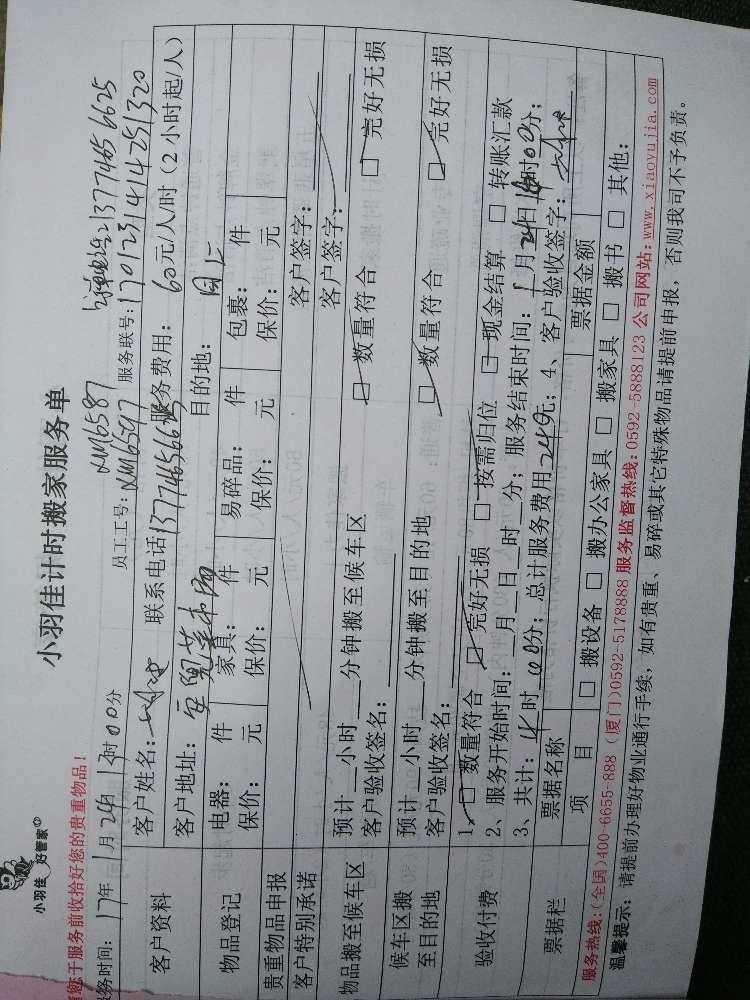 小羽佳 好管家
小羽佳计时搬家服务单
请您于服务前收拾好您的贵重物品！
XM6587 13774656625
服务时间： 17年 1月24日 13时00分 员工工号：XM6597 服务联号：1701231414251320
客户资料 客户姓名： 联系电话13774656625 服务费用： 60元/人/时（2小时起/人）
客户地址： 目的地： 同上
物品登记 电器： 件 家具： 件 易碎品： 件 包裹： 件
保价： 元 保价： 元 保价： 元 保价： 元
贵重物品申报 客户签字：
客户特别承诺 客户签字：
物品搬至候车区 预计__小时__分钟搬至候车区 □ 数量符合 □ 完好无损
客户验收签名：
候车区搬至目的地 预计__小时__分钟搬至目的地 □ 数量符合 □ 完好无损
客户验收签名：
验收付费 1、□ 数量符合 □ 完好无损 □ 按需归位 □ 现金结算 □ 转账汇款
2、服务开始时间：__月__日__时__分；服务结束时间：1月24日 时00分；
3、共计：4时00分；总计服务费用240元；4、客户验收签字：
票据栏 票据名称 票据金额
项 目 □ 搬设备 □ 搬办公家具 □ 搬家具 □ 搬书 □ 其他：
服务热线：(全国)400-6655-888 (厦门)0592-5178888 服务监督热线：0592-5888123 公司网站：www.xiaoyujia.com
温馨提示：请提前办理好物业通行手续，如有贵重、易碎或其它特殊物品请提前申报，否则我司不予负责。